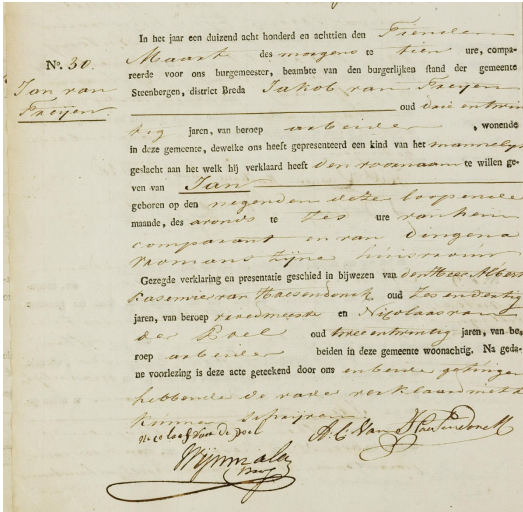 In het jaar een duizend acht honderd en achttien den Tienden
No. 30.
Maart des morgens te tien ure, compa-
Jan van
reerde voor ons burgemeester, beambte van den burgerlijken stand der gemeente
Freijen
Steenbergen, district Breda Jakob van Freijen
oud drie entwin
tig jaren, van beroep arbeider , wonende
in deze gemeente, dewelke ons heeft gepresenteerd een kind van het mannelijk
geslacht aan het welk hij verklaard heeft den voornaam te willen ge-
ven van Jan
geboren op den negenden deze loopende
maande, des avonds te Zes ure van hem
comparant en van Dingena
zijne huisvrouw
Gezegde verklaring en presentatie geschied in bijwezen van den Heer Albert
Kasemir van Haesendonck oud Zes en dertig
jaren, van beroep en Nicolaas van
der Poel oud twee entwintig jaren, van be-
roep arbeider beiden in deze gemeente woonachtig. Na geda-
ne voorlezing is deze acte geteekend door ons en beide getuigen
hebbende de vader verklaard niet te
kunne schrijven
Nicolaas Van de Poel
A. C. Van Haesendonck